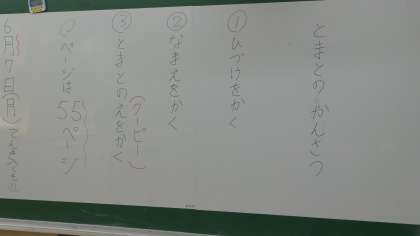 とまとのかんさつ
①ひづけをかく
②なまえをかく
③とまとのえをかく
(クーピー)
○ページは55ページ
6月7日(月)